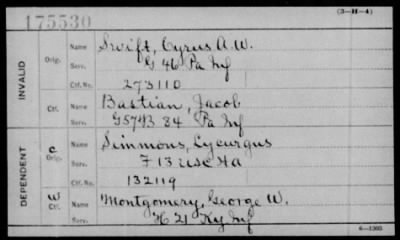 175530
(3-H-4)
INVALID
Orig. Name Swift, Cyrus A. W.
Serv. G 46 Pa Inf
Ctf. No. 273110
Ctf. Name Bastian, Jacob
Serv. 84 Pa Inf
DEPENDENT
C Orig. Name Simmons, Lycurgus
Serv. F 13 USC Ha
Ctf. No. 132119
W Ctf. Name Montgomery, George W.
Serv. H 21 Ky Inf
6-1305